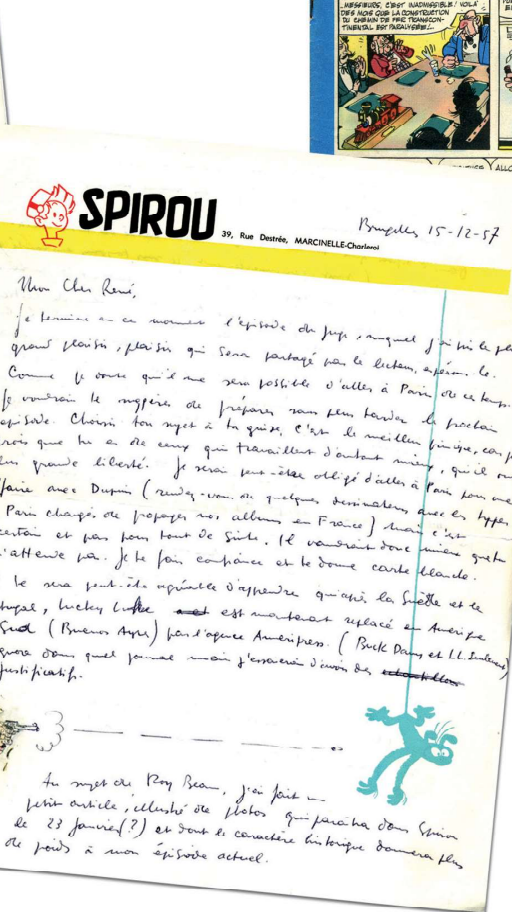 MESSIEURS, C'EST INADMISSIBLE! VOILÀ
DES MOIS QUE LA CONSTRUCTION
DU CHEMIN DE FER TRANSCON-
TINENTAL EST PARALYSÉE!..
ALLO
SPIROU
39, Rue Destrée, MARCINELLE-Charleroi
Bruxelles 15-12-57
Mon Cher René,
Je termine en ce moment l'épisode du juge, auquel j'ai pris le pl
grand plaisir, plaisir qui sera partagé par le lecteur, espérons le.
Comme je doute qu'il me sera possible d'aller à Paris de ce temps
je voudrais te suggérer de préparer sans plus tarder le prochain
épisode. Choisis ton sujet à ta guise, c'est le meilleur principe, car j
rois que tu es de ceux qui travaillent d'autant mieux, qu'il ont
plus grande liberté. Je serai peut-être obligé d'aller à Paris pour une
faire avec Dupuis (rendez-vous de quelques dessinateurs avec les types
Paris chargés de propager nos albums en France) mais c'est
certain et pas pour tout de suite. Il vaudrait donc mieux que tu
l'attende pas. Je te fais confiance et te donne carte blanche.
Il te sera peut-être agréable d'apprendre qu'après la Suède et le
tugal, Lucky Luke est maintenant replacé en Amérique
Sud (Buenos Ayres) par l'agence Ameripress. (Buck Dany et
gnore dans quel journal mais j'essaierai d'avoir des
justificatifs.
Au sujet de Roy Bean, j'ai fait un
petit article, illustré de photos qui paraîtra dans Spirou
le 23 Janvier(?) et dont le caractère historique donnera plus
de poids à mon épisode actuel.